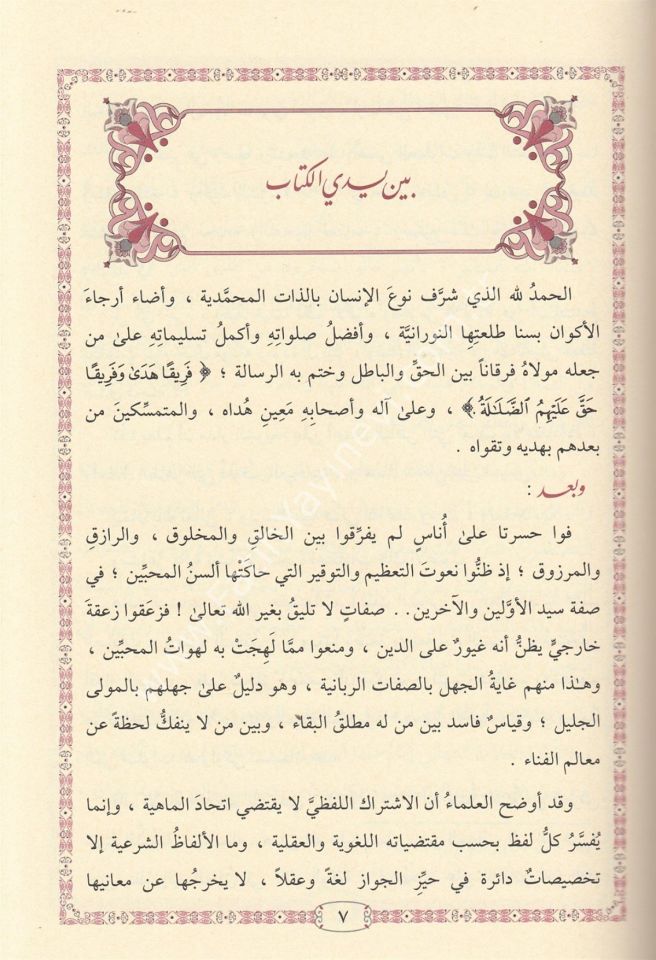 بين يدي الكتاب
الحمدُ لله الذي شرَّف نوعَ الإنسان بالذات المحمَّدية ، وأضاء أرجاءَ
الأكوان بسنا طلعتِها النورانيَّة ، وأفضلُ صلواتِهِ وأكملُ تسليماتِهِ علىٰ من
جعله مولاهُ فرقاناً بين الحقِّ والباطل وختم به الرسالة ؛ ﴿ فَرِيقًا هَدَىٰ وَفَرِيقًا
حَقَّ عَلَيْهِمُ ٱلضَّلَٰلَةُ ﴾ ، وعلىٰ آله وأصحابِهِ مَعِينِ هُداه ، والمتمسِّكينَ من
بعدهم بهديه وتقواه .
وبعد :
فوا حسرتا علىٰ أُناسٍ لم يفرِّقوا بين الخالقِ والمخلوق ، والرازقِ
والمرزوق ؛ إذ ظنُّوا نعوتَ التعظيم والتوقير التي حاكَتْها ألسنُ المحبِّين ؛ في
صفة سيد الأوَّلين والآخرين.. صفاتٍ لا تليقُ بغير الله تعالىٰ ! فزعَقوا زعقةَ
خارجيٍّ يظنُّ أنه غيورٌ على الدين ، ومنعوا ممَّا لَهِجَتْ به لهواتُ المحبِّين ،
وهـٰذا منهم غايةُ الجهل بالصفات الربانية ، وهو دليلٌ علىٰ جهلهم بالمولى
الجليل ؛ وقياسٌ فاسد بين من له مطلقُ البقاء ، وبين من لا ينفكُّ لحظة عن
معالم الفناء .
وقد أوضح العلماءُ أن الاشتراك اللفظيَّ لا يقتضي اتحادَ الماهية ، وإنما
يُفسَّرُ كلُّ لفظ بحسب مقتضياته اللغوية والعقلية ، وما الألفاظُ الشرعية إلا
تخصيصاتٌ دائرة في حيِّز الجواز لغةً وعقلاً ، لا يخرجُها عن معانيها
٧